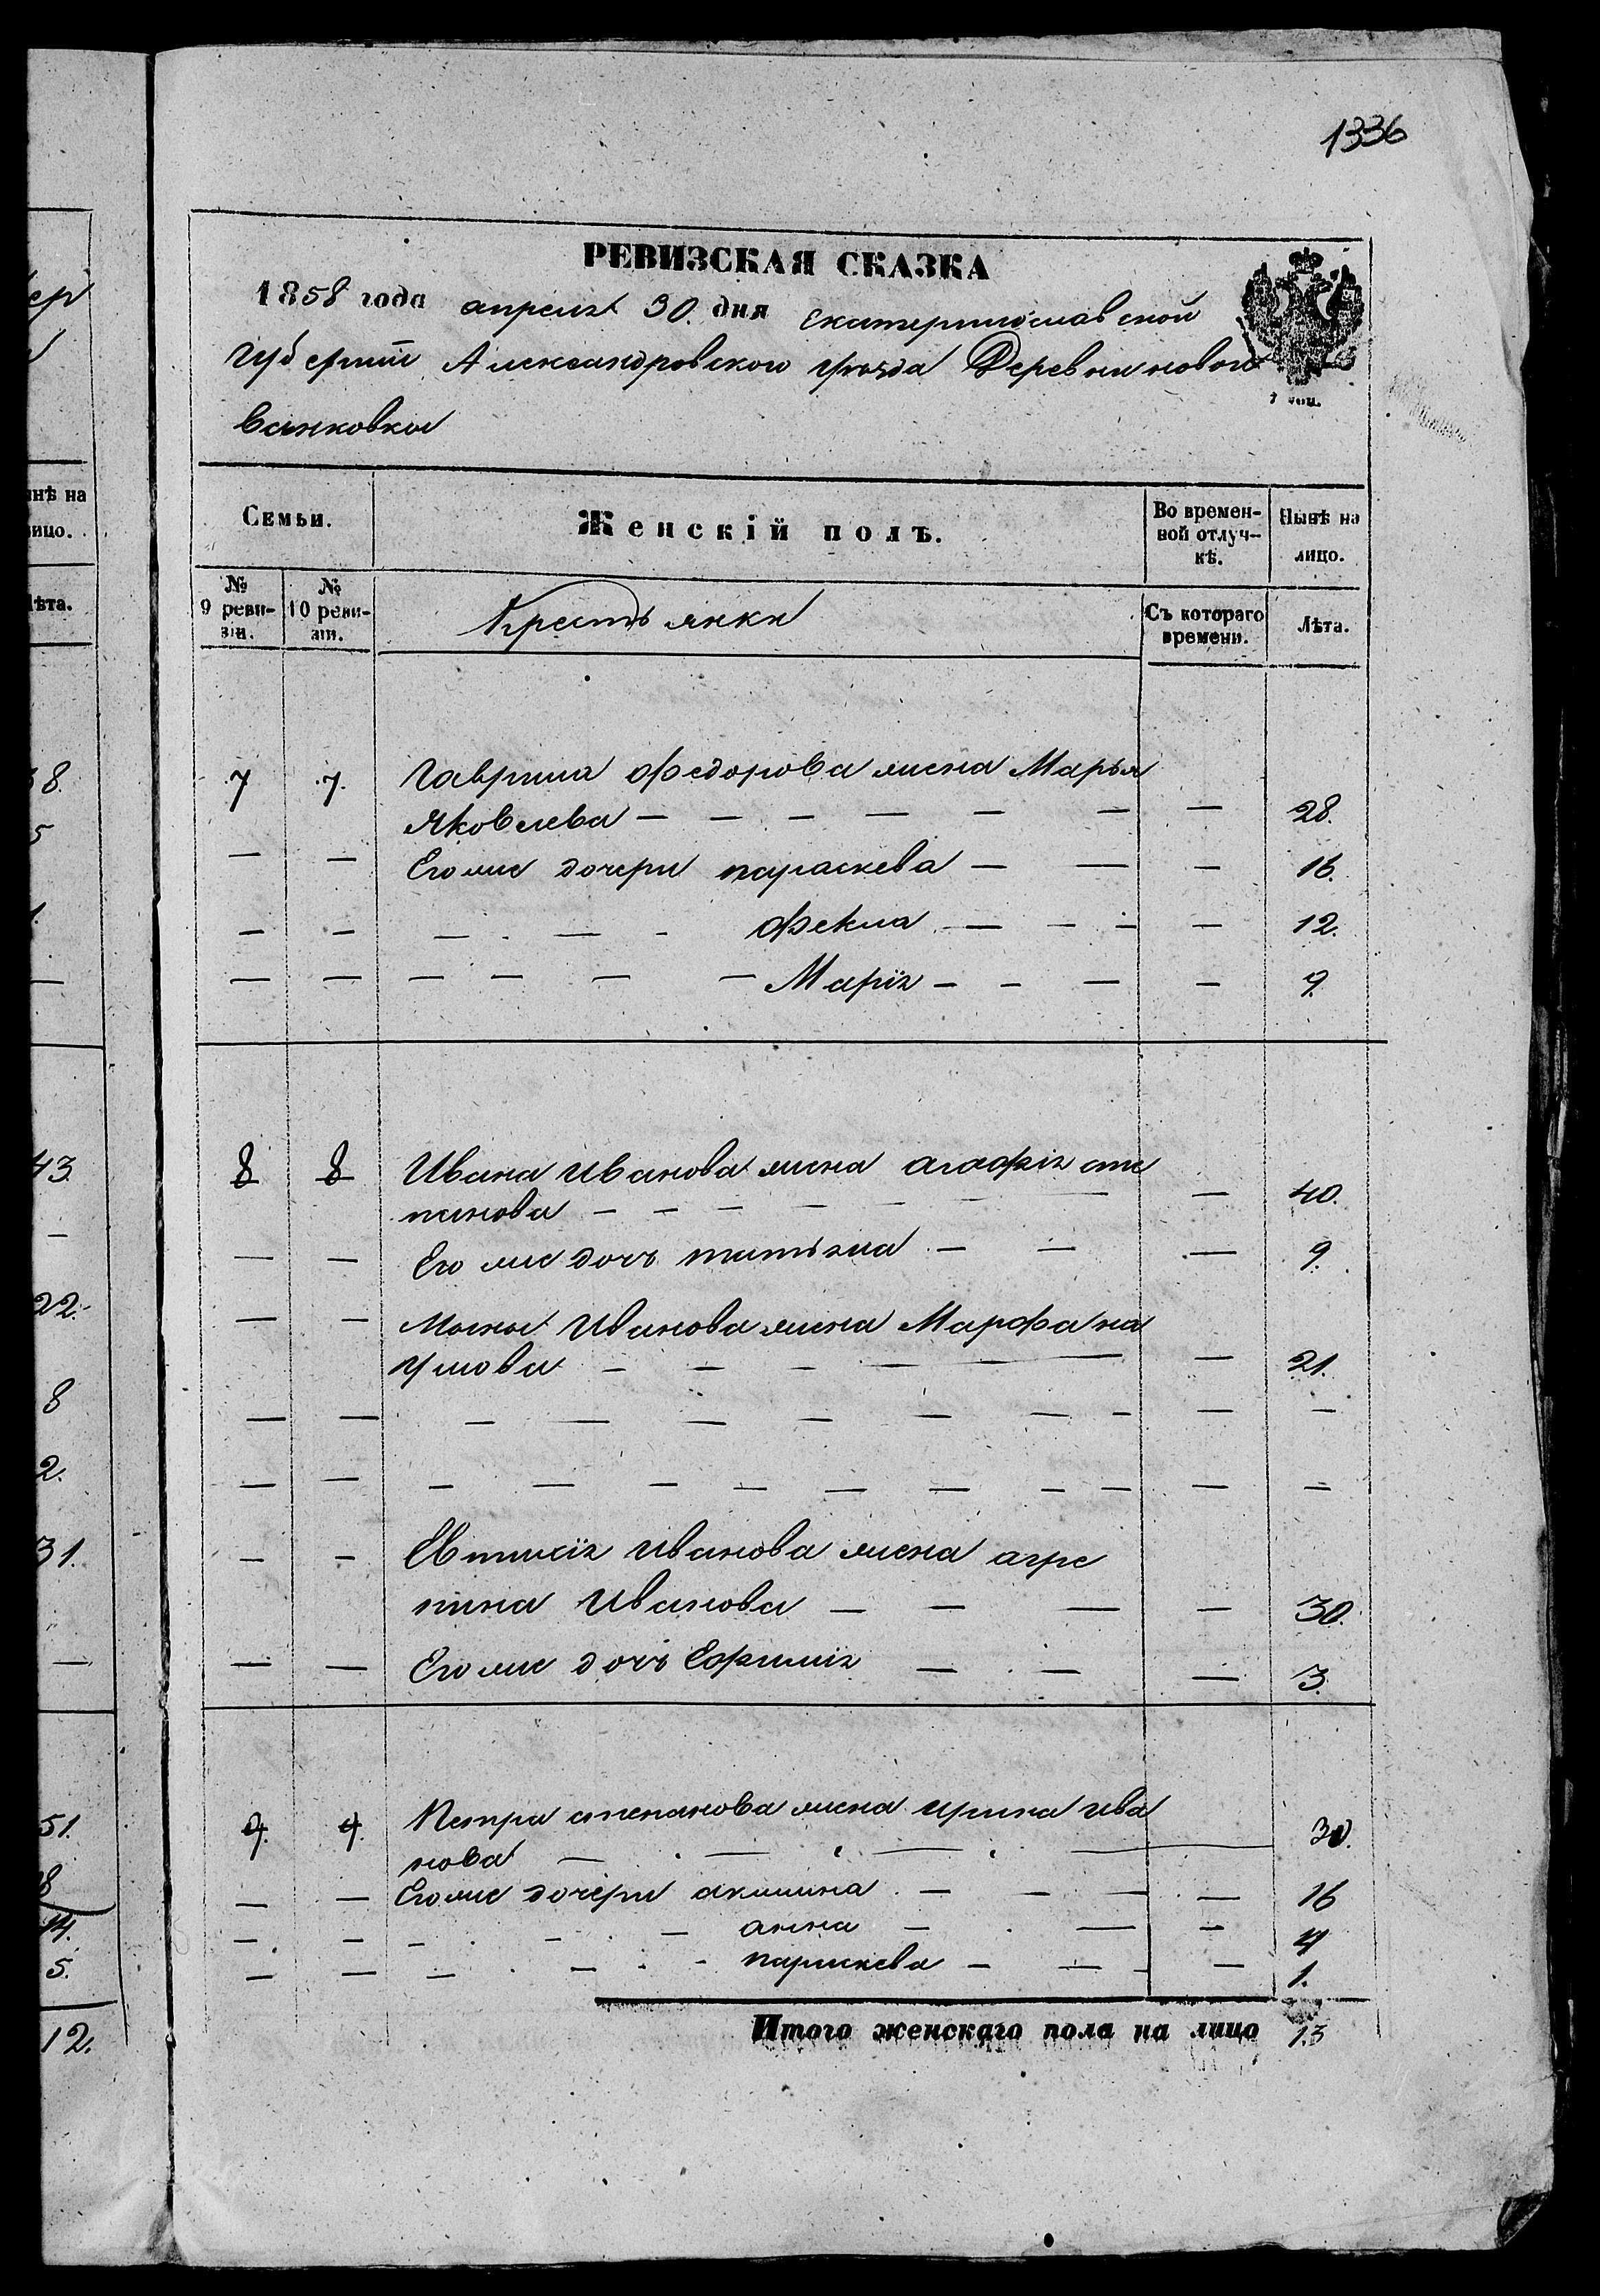 1336
РЕВИЗСКАЯ СКАЗКА
1858 года апреля 30. дня екатеринославской
губернiи Александровского уѣзда Деревни новой
Ванковки
Семьи.
Женскiй полъ.
Во времен-
ной отлуч-
кѣ.
Нынѣ на
лицо.
№
9 реви-
зiи.
№
10 реви-
зiи.
Крестьянки
Съ котораго
времени.
Лѣта.
7 7. Гаврила федорова жена Марья
Яковлева — — — — — — — 28.
— — Его же дочери параскева — — — 16.
— — — — — фекла — — — — 12.
— — — — — — Марiя — — — — 9.
8 8 Ивана Иванова жена агафiя сте
панова — — — — — — — 40.
— — Его же дочь татьяна — — — 9.
— — Моисы Иванова жена Марфа на
умова — — — — — — — 21.
— — — — — — — — — — —
— — — — — — — — — — — —
— — Евтихiя Иванова жена агре
пина Иванова — — — — 30.
— — Его же дочь Ефимiя — — — 3.
9. 9. Петра степанова жена ирина ива
нова — — — — 30.
— — Его же дочери акилина — — — — 16
— — — — — анна — — — 4
— — — — — параскева — — — — 1.
Итого женскаго пола на лицо 13
нѣ на
ицо.
ѣта.
8.
5
1.
—
43.
—
22.
8
2.
31.
—
51.
8
14.
5.
12.